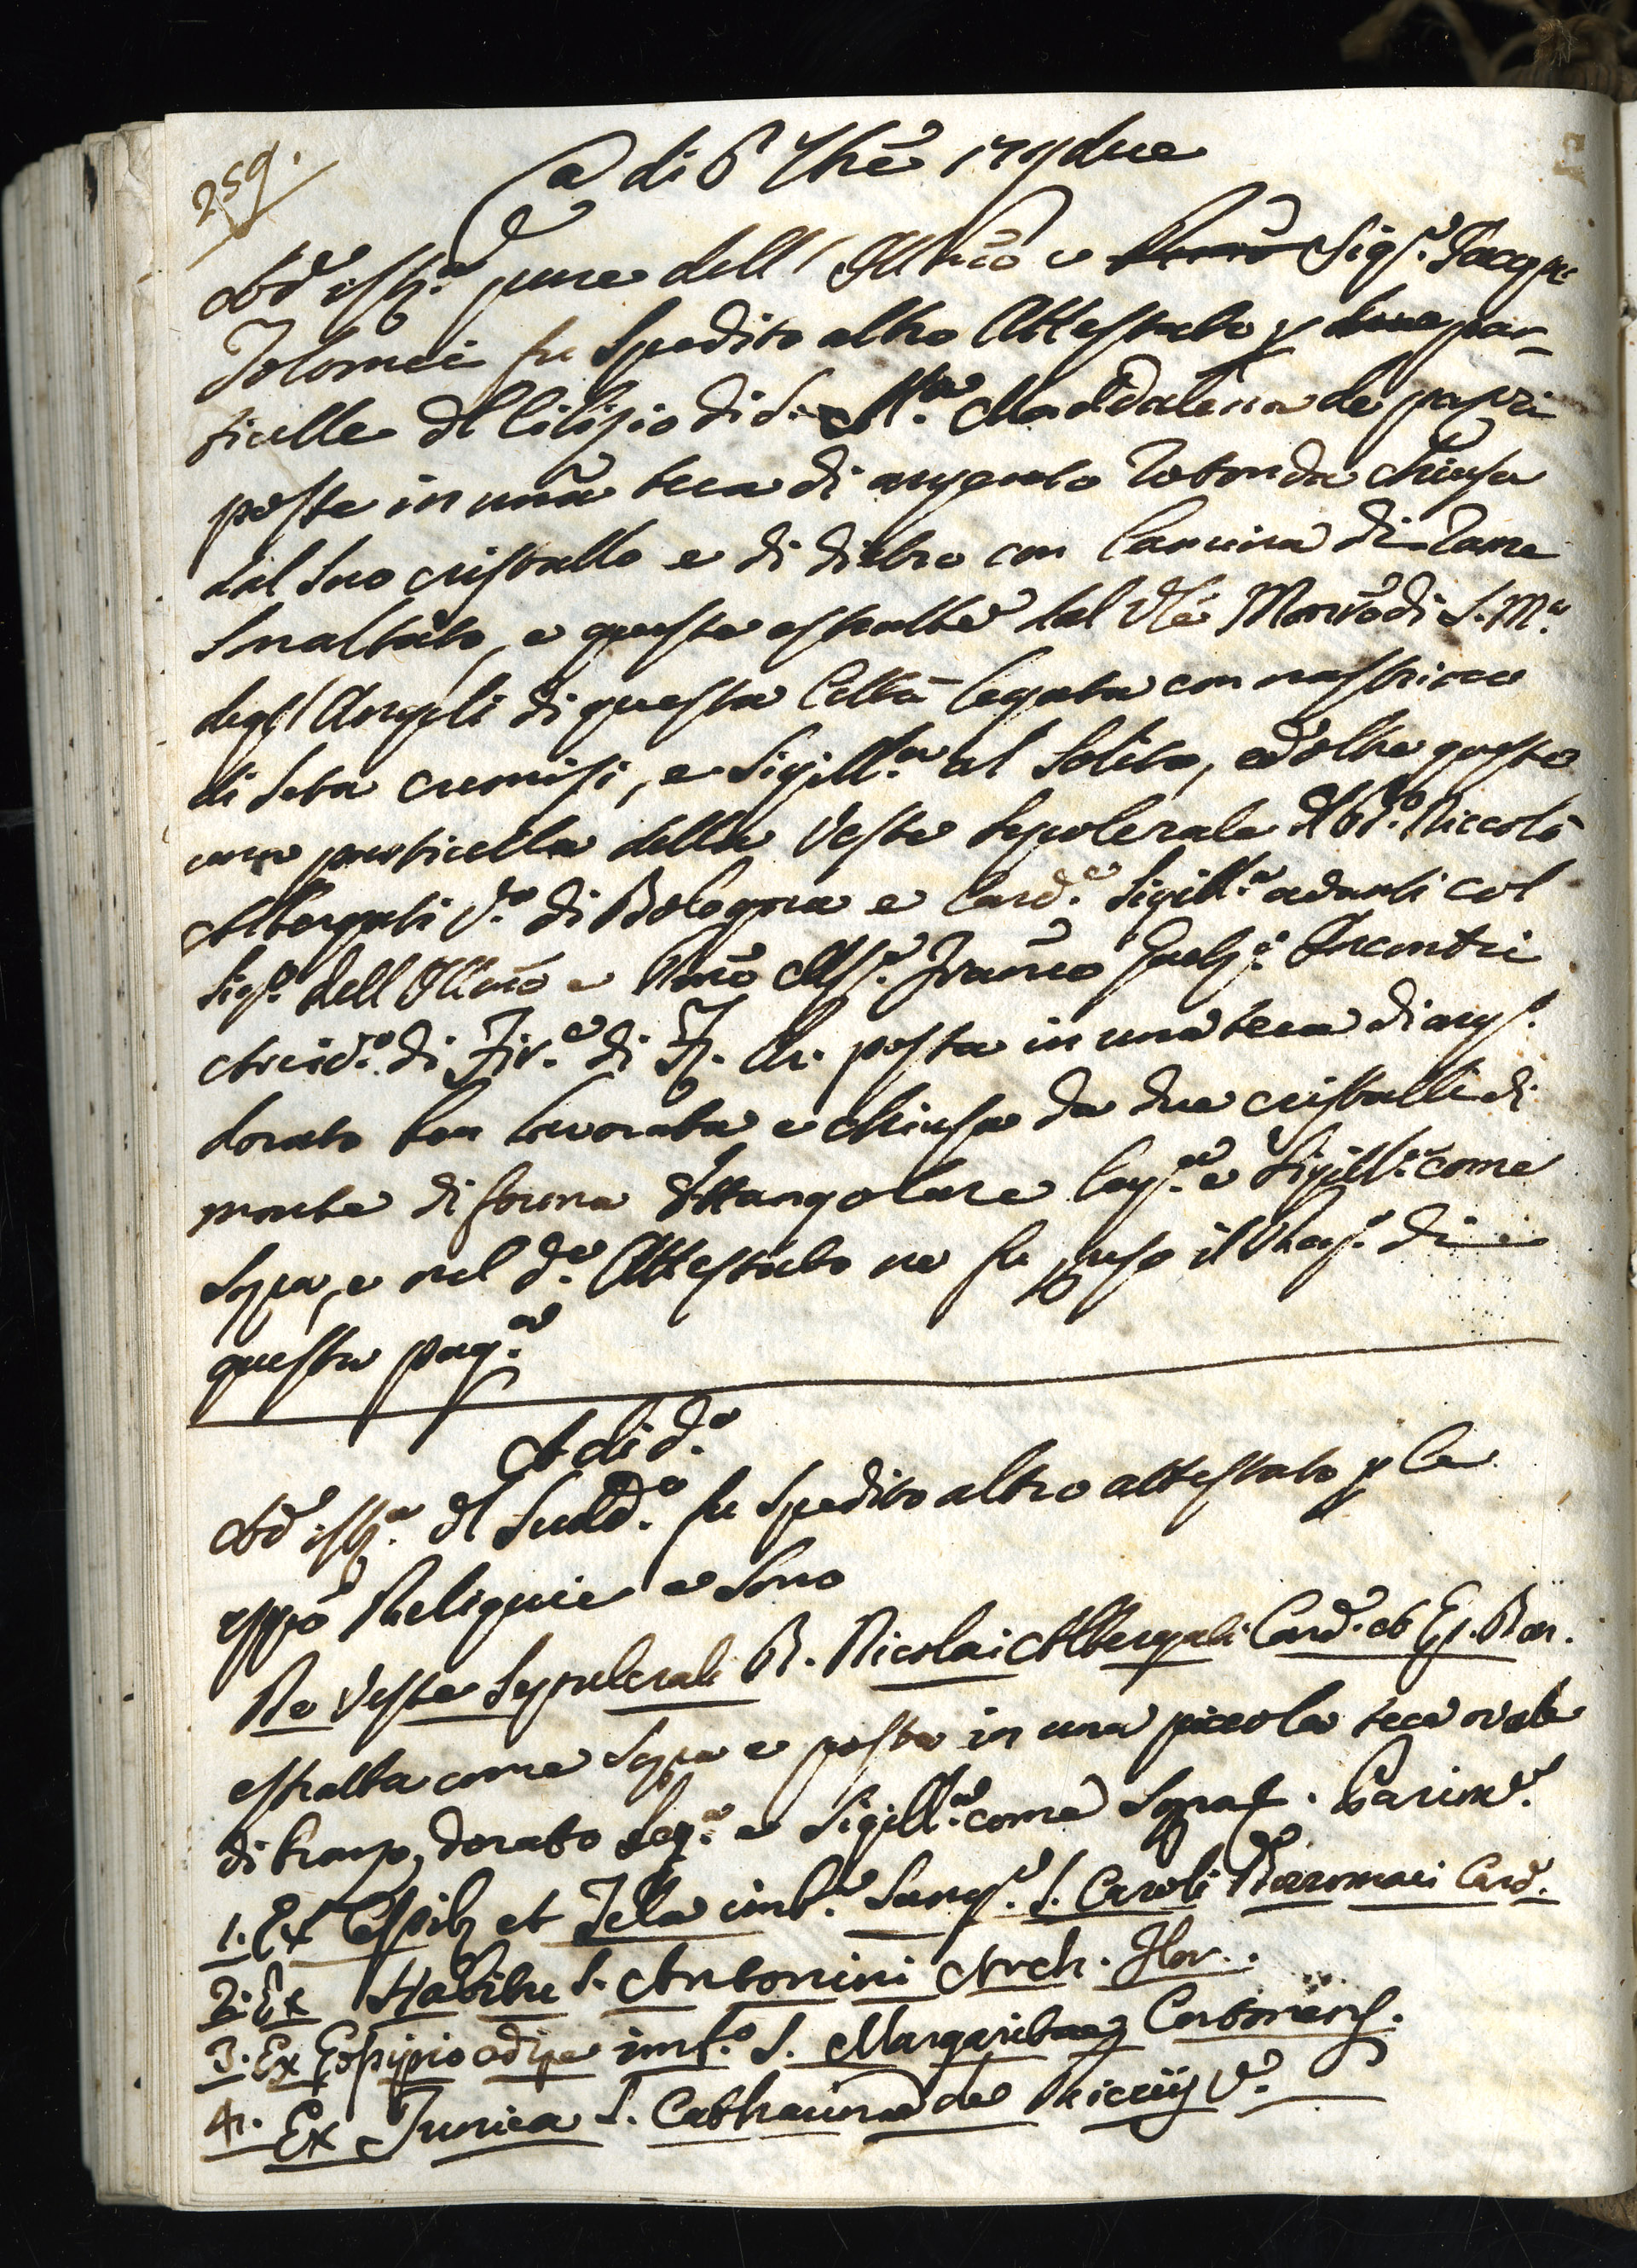 259.
A di 6 7bre 17ndue
Ad ist.a pure dell' Illmo e Rmo Sig.r Jacopo
Tolomei fu spedito altro Attestato p due par-
ticelle dl Cilizio di S. M.a Maddalena de pazzi
poste in una teca di argento rotonda chiusa
dal suo cristallo e di dietro con lamina di rame
smaltato, e queste estratte dal Vle Monro di S. M.a
degl' Angeli di questa Città legata con nastrino
di seta cremisi, e Sigill.a al solito, ed oltre queste
una particella della Veste sepolcrale dl B.o Niccolò
Albergati V.o di Bologna e Card.e Sigill.a avanti col
Sig.o dell Illmo e Rmo Ms.r Franco Gaet.o Incontri
Arciv.o di Fir.e di F. R. posta in una teca di arg.o
dorato ben lavorata e chiusa da due cristalli di
monte di forma ottangolare leg.a e Sigill.a come
sopra, e nel d.o Attestato ne fu preso il Trasp.o di
questa pag.a
A di d.o
Ad ist.a dl Sudd.o fu spedito altro attestato p le
appo Reliquie e sono
De Veste Sepulcrali B. Nicolai Albergati Card. et Ep. Bon.
estratta come sopra e posta in una piccola teca ovale
di bronzo dorato leg.a e Sigill.a come sopra. Parim.e
1. Ex Capilis et Tela imb.a Sang.e S. Caroli Borromaei Card.
2. Ex Habitu S. Antonini Arch. Flor.
3. Ex Gossipio adipe imb.o S. Margaritae Cortonens.
4. Ex Tunica S. Catharinae de Ricciis V.